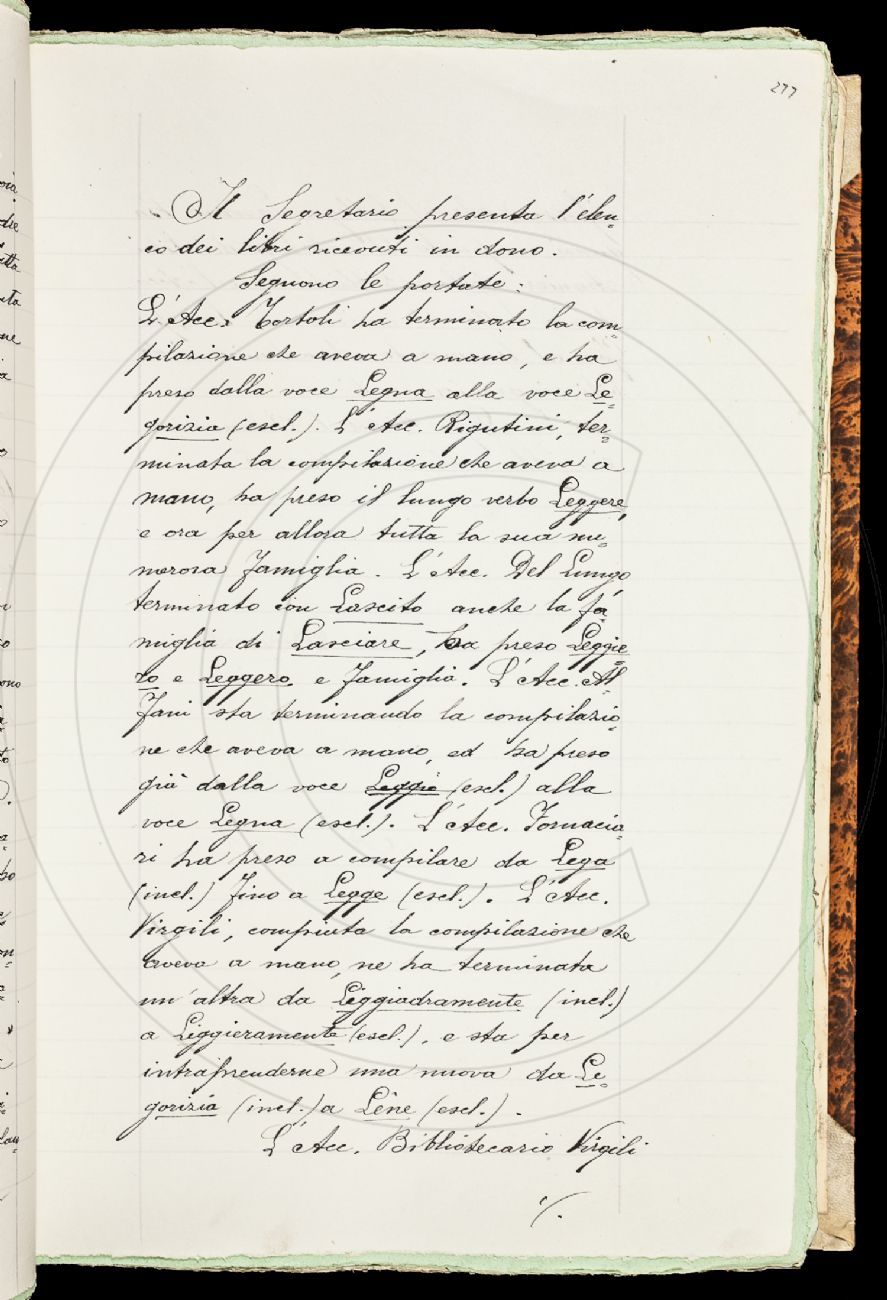 277
Il Segretario presenta l'elen=
co dei libri ricevuti in dono.
Seguono le portate:
L'Acc. Tortoli ha terminato la com=
pilazione che aveva a mano, e ha
preso dalla voce Legna alla voce Le=
gorizia (escl.). L'Acc. Rigutini, ter=
minata la compilazione che aveva a
mano, ha preso il lungo verbo Leggere,
e ora per allora tutta la sua nu=
merosa famiglia. L'Acc. Del Lungo,
terminato con Lascito anche la fa=
miglia di Lasciare, ha preso Leggie=
ro e Leggero e famiglia. L'Acc. Al=
fani sta terminando la compilazio=
ne che aveva a mano, ed ha preso
già dalla voce Leggio (escl.) alla
voce Legna (escl.). L'Acc. Fornacia=
ri ha preso a compilare da Lega
(incl.) fino a Legge (escl.). L'Acc.
Virgili, compiuta la compilazione che
aveva a mano, ne ha terminata
un'altra da Leggiadramente (incl.)
a Leggieramente (escl.), e sta per
intraprenderne una nuova da Le=
gorizia (incl.) a Lène (escl.).
L'Acc. Bibliotecario Virgili
./.